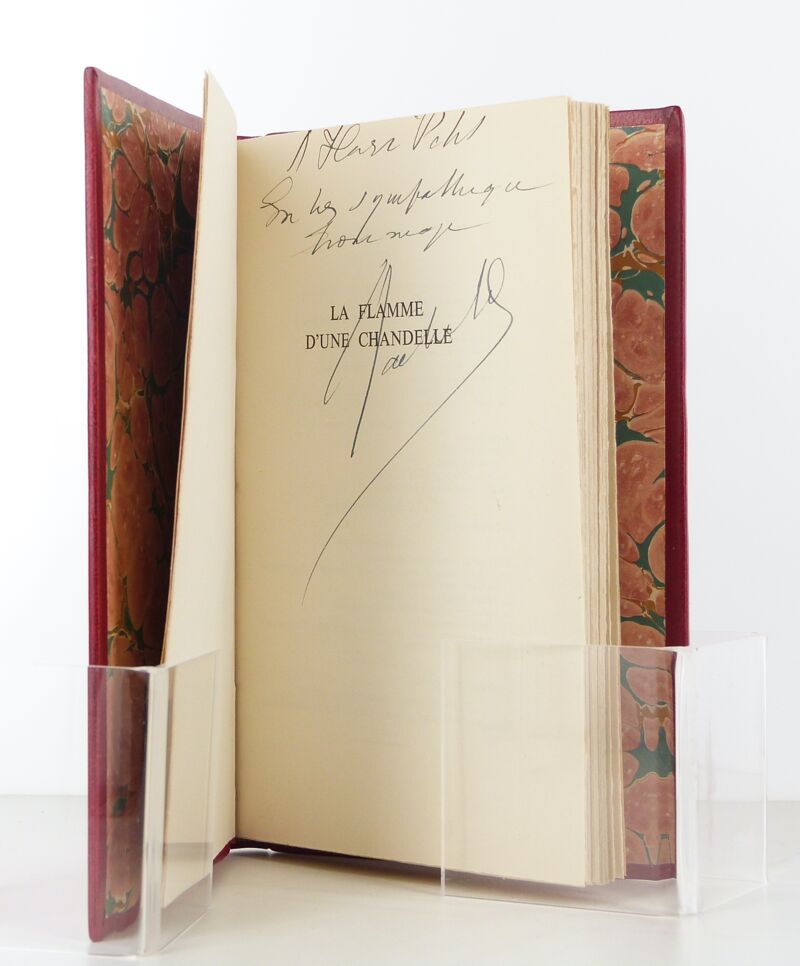 A Henri Pohs
En très sympathique
hommage
LA FLAMME
D'UNE CHANDELLE
Bachelard